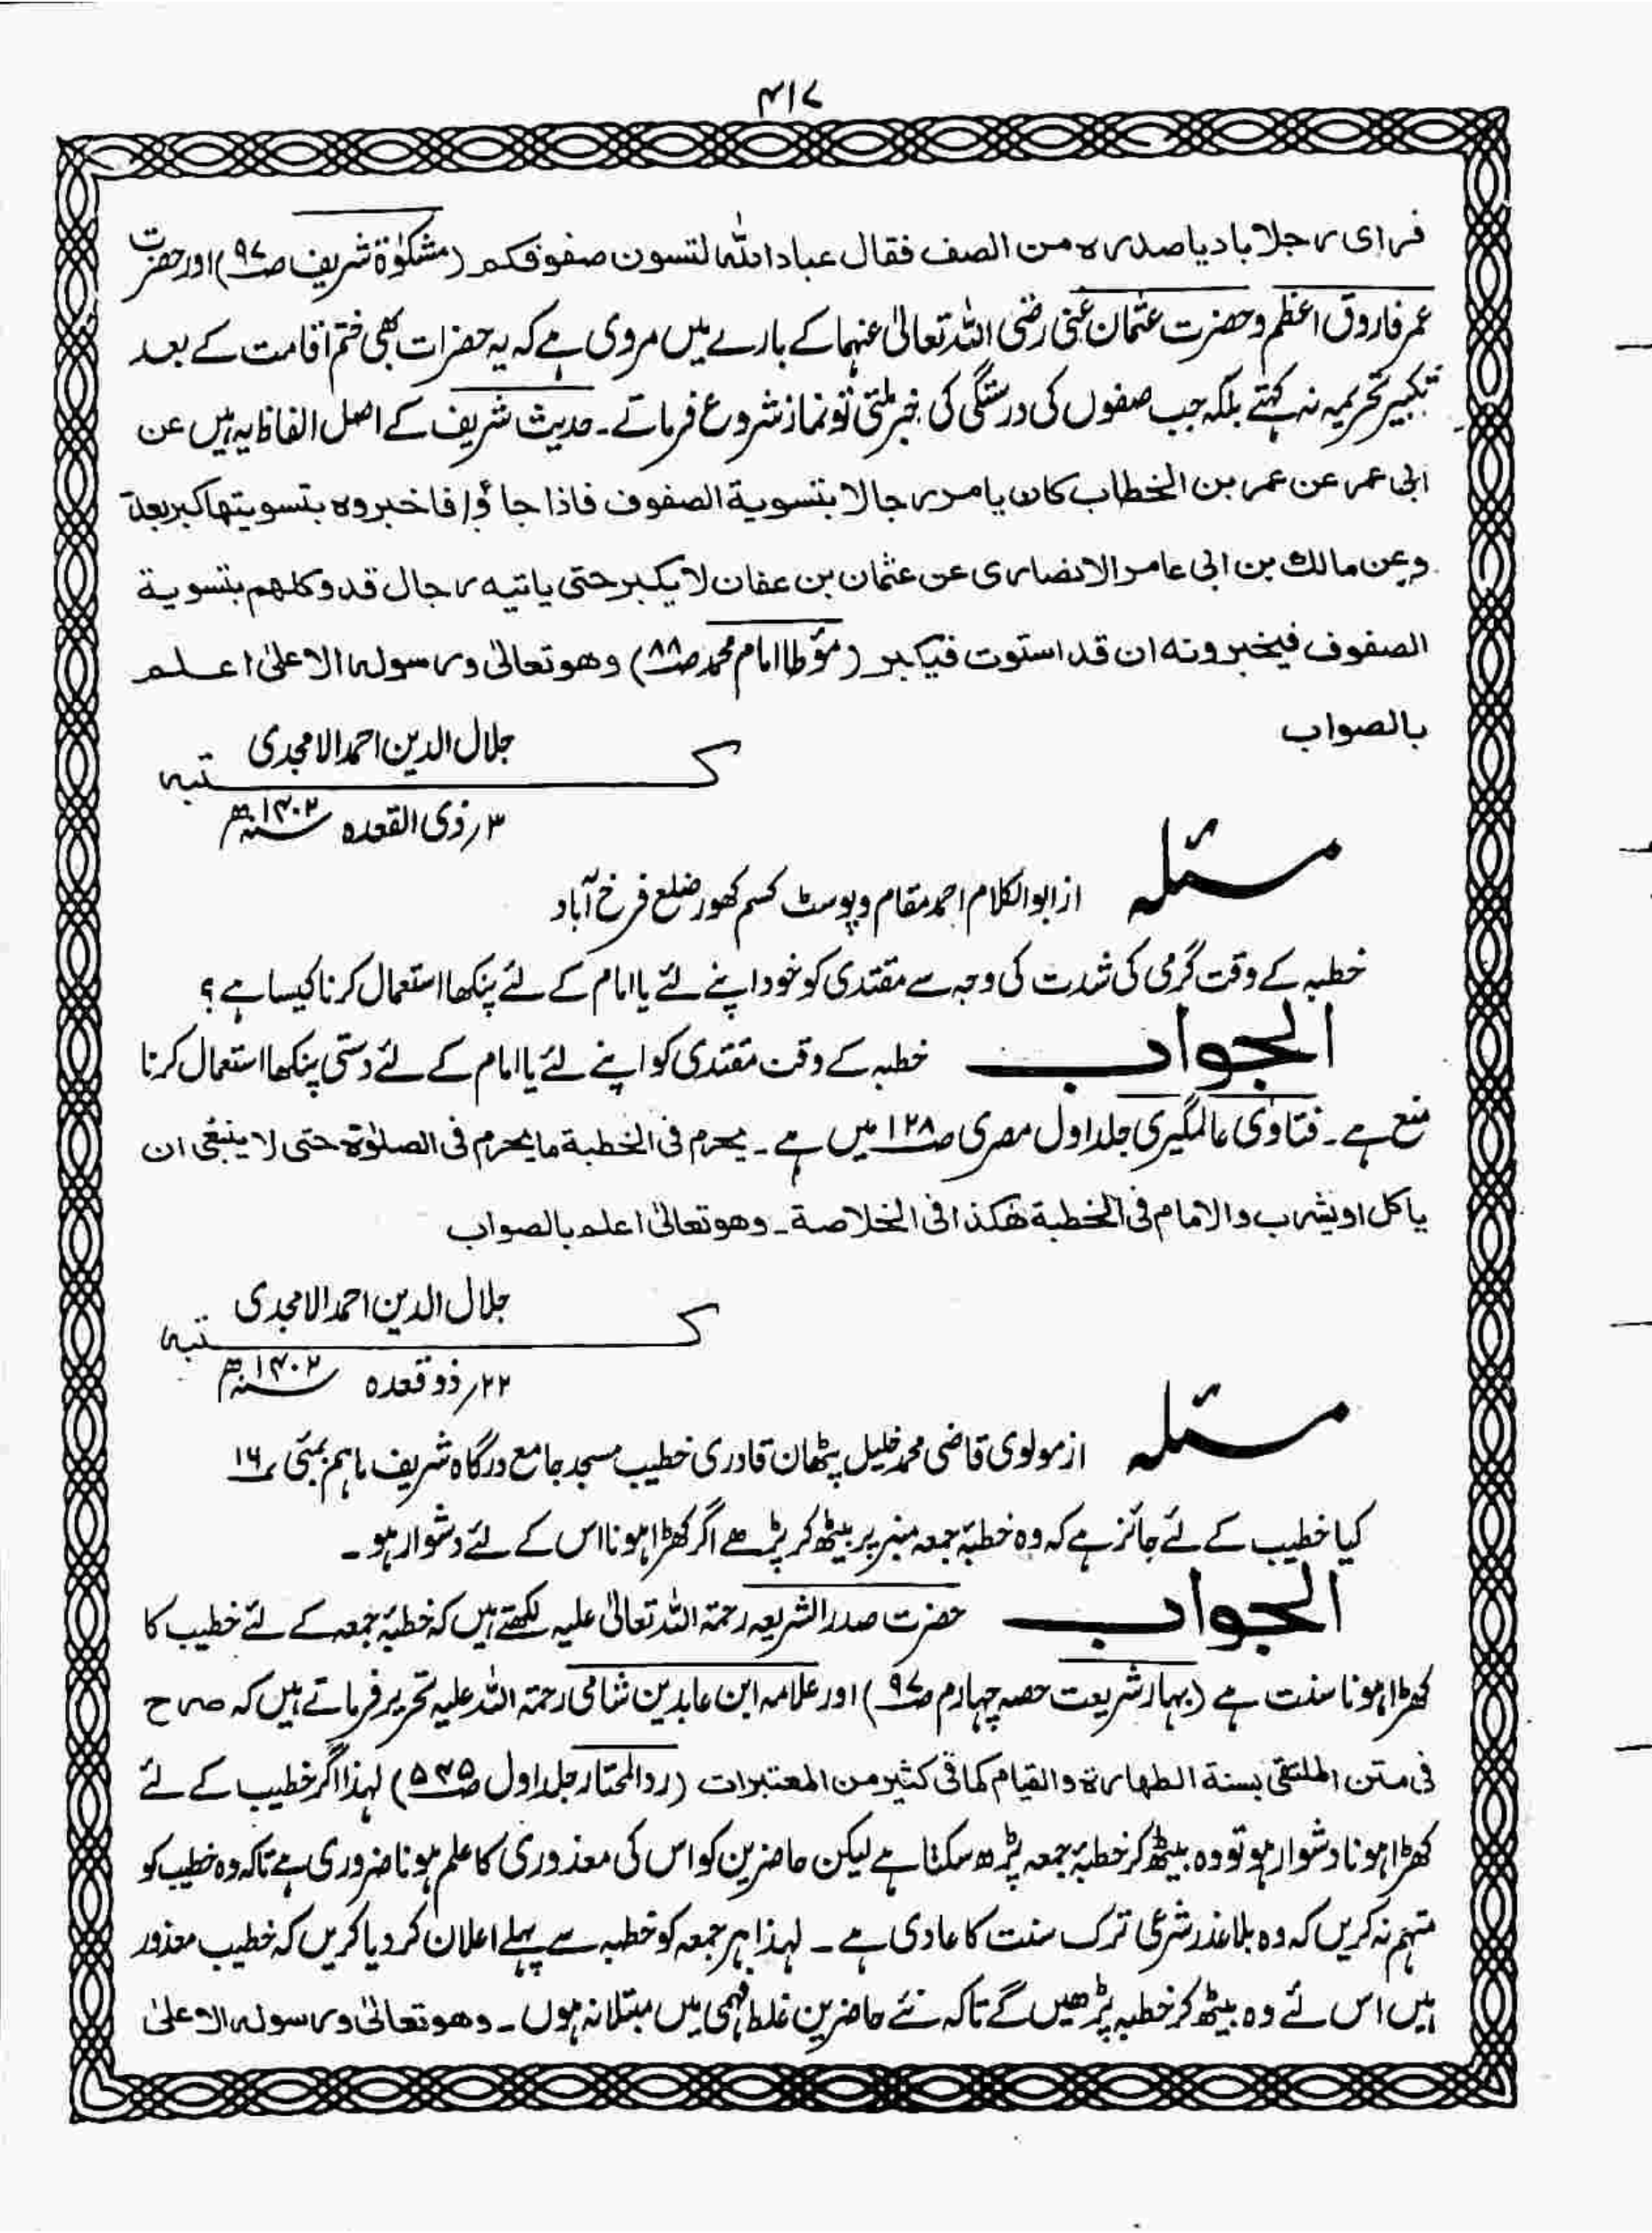 ۴۱۷
فرای رجلا بادیا صدرہ من الصف فقال عباد اللہ لتسون صفوفکم (مشکوٰۃ شریف ص۹۷) اور حضرت
عمر فاروق اعظم و حضرت عثمان غنی رضی اللہ تعالیٰ عنہما کے بارے میں مروی ہے کہ یہ حضرات بھی ختم اقامت کے بعد
تکبیر تحریمہ نہ کہتے بلکہ جب صفوں کی درستگی کی خبر ملتی تو نماز شروع فرماتے۔ حدیث شریف کے اصل الفاظ یہ ہیں عن
ابی عمر عن عمر بن الخطاب کان یامر رجالا بتسویۃ الصفوف فاذا جاؤا فاخبروہ بتسویتھا کبر بعدۃ
وعن مالک بن ابی عامر الانصاری عن عثمان بن عفان لا یکبر حتی یاتیہ رجال قد وکلھم بتسویۃ
الصفوف فیخبرونہ ان قد استوت فیکبر (مؤطا امام محمد ص۸۸) وھو تعالیٰ ورسولہ الاعلیٰ اعلم
بالصواب
جلال الدین احمد الامجدی
کتبہ
۳؍ ذی القعدہ سنہ ۱۴۰۲ھ
مسئلہ
از ابوالکلام احمد مقام و پوسٹ کسم کھور ضلع فرخ آباد
خطبہ کے وقت گرمی کی شدت کی وجہ سے مقتدی کو خود اپنے لئے یا امام کے لئے پنکھا استعمال کرنا کیسا ہے؟
الجواب خطبہ کے وقت مقتدی کو اپنے لئے یا امام کے لئے دستی پنکھا استعمال کرنا
منع ہے۔ فتاوٰی عالمگیری جلد اول مصری ص۱۲۸ میں ہے۔ یحرم فی الخطبۃ ما یحرم فی الصلوٰۃ حتی لا ینبغی ان
یاکل او یشرب والامام فی الخطبۃ ھکذا فی الخلاصۃ۔ وھو تعالیٰ اعلم بالصواب
جلال الدین احمد الامجدی
کتبہ
۲۲؍ ذوقعدہ سنہ ۱۴۰۲ھ
مسئلہ
از مولوی قاضی محمد خلیل پٹھان قادری خطیب مسجد جامع درگاہ شریف ماہم بمبئی ۱۶
کیا خطیب کے لئے جائز ہے کہ وہ خطبۂ جمعہ منبر پر بیٹھ کر پڑھے اگر کھڑا ہونا اس کے لئے دشوار ہو۔
الجواب حضرت صدر الشریعہ رحمۃ اللہ تعالیٰ علیہ لکھتے ہیں کہ خطبۂ جمعہ کے لئے خطیب کا
کھڑا ہونا سنت ہے (بہار شریعت حصہ چہارم ص۹۷) اور علامہ ابن عابدین شامی رحمۃ اللہ علیہ تحریر فرماتے ہیں کہ صرح
فی متن الملتقی بسنۃ الطھارۃ والقیام کما فی کثیر من المعتبرات (ردالمحتار جلد اول ص۵۴۵) لہذا اگر خطیب کے لئے
کھڑا ہونا دشوار ہو تو وہ بیٹھ کر خطبۂ جمعہ پڑھ سکتا ہے لیکن حاضرین کو اس کی معذوری کا علم ہونا ضروری ہے تاکہ وہ خطیب کو
متہم نہ کریں کہ وہ بلا عذر شرعی ترک سنت کا عادی ہے۔ لہذا ہر جمعہ کو خطبہ سے پہلے اعلان کر دیا کریں کہ خطیب معذور
ہیں اس لئے وہ بیٹھ کر خطبہ پڑھیں گے تاکہ نئے حاضرین غلط فہمی میں مبتلا نہ ہوں۔ وھو تعالیٰ ورسولہ الاعلیٰ